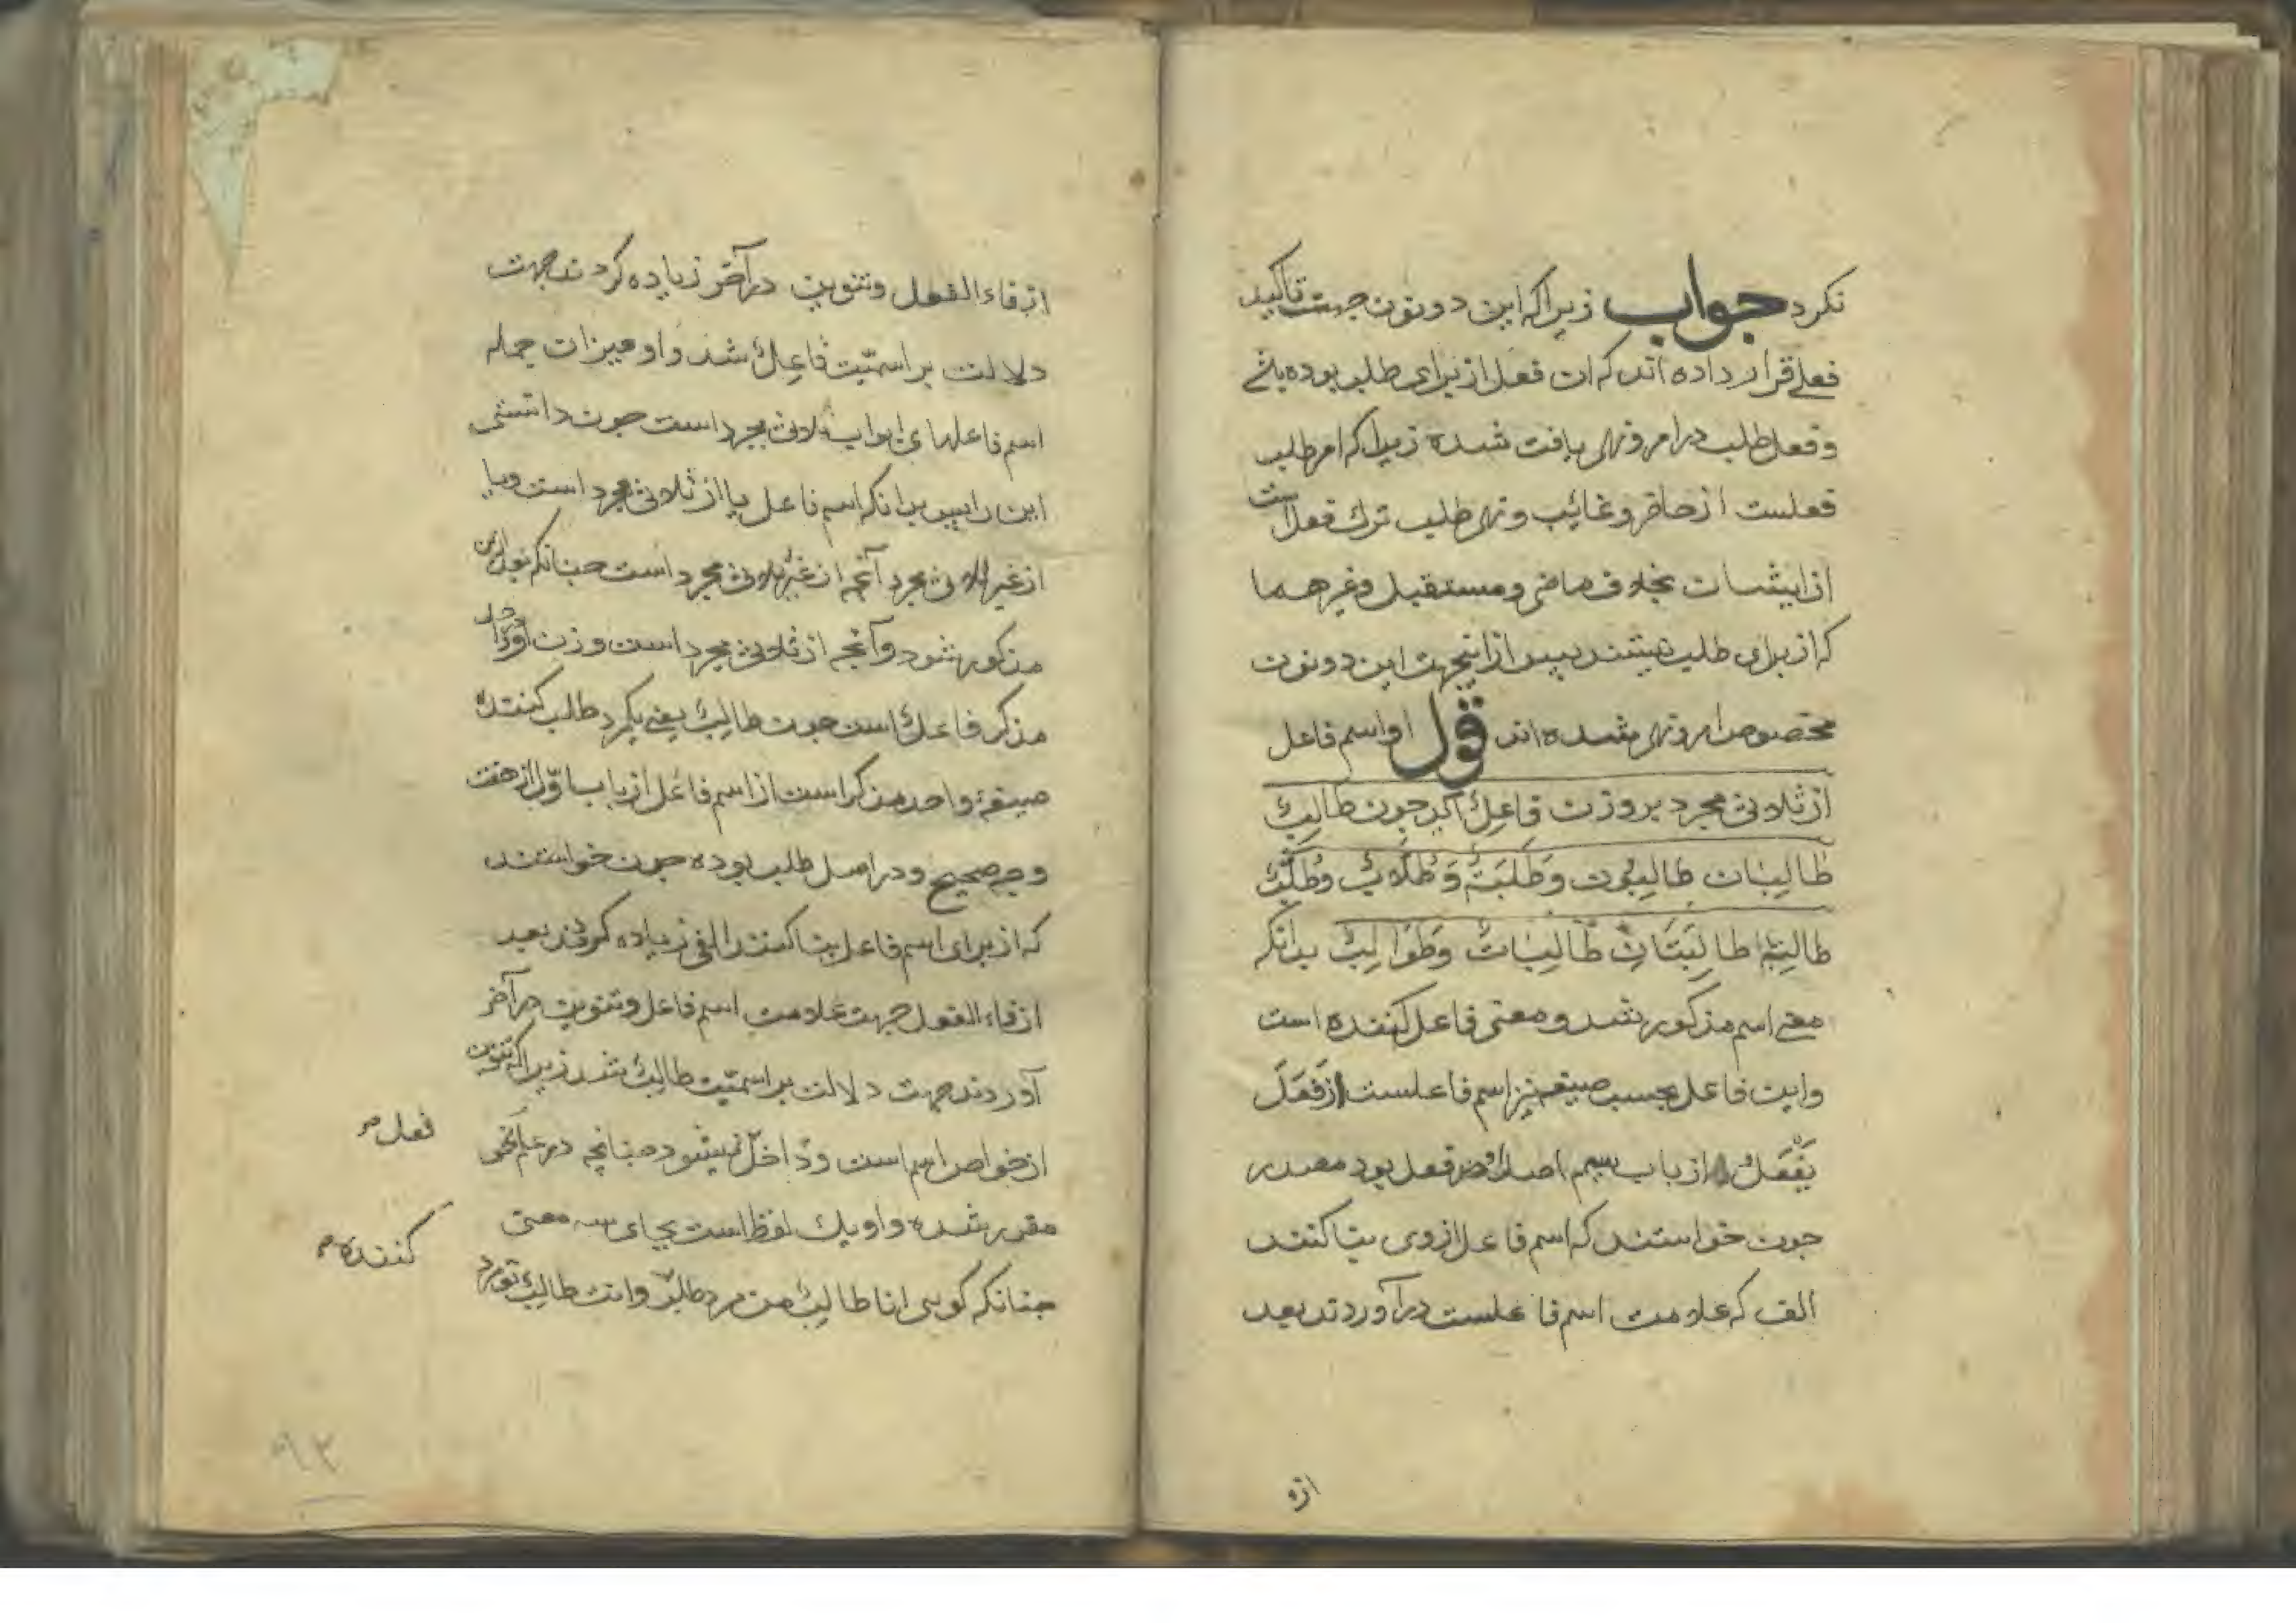 نکرد جواب زیرا که این دو نون جهت تاکید
فعلی قرار داده اند که ان فعل از برای طلب بوده باشد
و فعل طلب در امر و نهی یافت شده زیرا که امر طلب
فعلست از حاضر و غایب و نهی طلب ترک فعل است
از ایشان بخلاف ماضی و مستقبل و غیرهما
که از برای طلب نیستند پس از اینجهت این دو نون
مختصوص امر و نهی شده اند قول او اسم فاعل
از ثلاثی مجرد بر وزن فاعِلٌ آید چون طالِبٌ
طالِبانِ طالِبُون وَطَلَبَةٌ وَطُلّابٌ وطُلَّبٌ
طالِبَةٌ طالِبَتَانِ طالِباتٌ وَطَوَالِبُ بدانکه
معنی اسم مذکور شد و معنی فاعل کننده است
واین فاعل بحسب صیغه نیز اسم فاعلست از فَعَلَ
یَفْعَلُ از باب سیم اصل او فعل بود مصدر
چون خواستند که اسم فاعل از وی بنا کنند
الف که علامت اسم فاعلست درآوردند بعد
ازه
از فاء الفعل و تنوین در آخر زیاده کردند جهت
دلالت بر اسمیّت فاعِلٌ شد و او میزان جمله
اسم فاعلهای ابواب ثلاثی مجرد است چون دانستی
این را پس بدانکه اسم فاعل یا از ثلاثی مجرد است ویا
از غیر ثلاثی مجرد آنچه از غیر ثلاثی مجرد است چنانکه بعد ازین
مذکور شود وآنچه از ثلاثی مجرد است وزن او در
مذکر فاعلٌ است چون طالِبٌ یعنی یکمرد طلب کننده
صیغهٔ واحد مذکر است از اسم فاعل از باب اوّل از هفت
وجه صحیح و در اصل طلب بوده چون خواستند
که از برای اسم فاعل بنا کنند الفی زیاده کردند بعد
از فاء الفعل جهت علامت اسم فاعل وتنوین در آخر
آوردند جهت دلالت بر اسمیّت طالِبٌ شد زیرا که تنوین
از خواص اسم است و داخل نمیشود چنانچه در علم نحو
فعل صر
مقرر شده و او یک لفظ است بجای سه معنی
کننده صر
چنانکه کویی انا طالِبٌ من مرد طلب وانت طالِبٌ تو مرد
۹۳